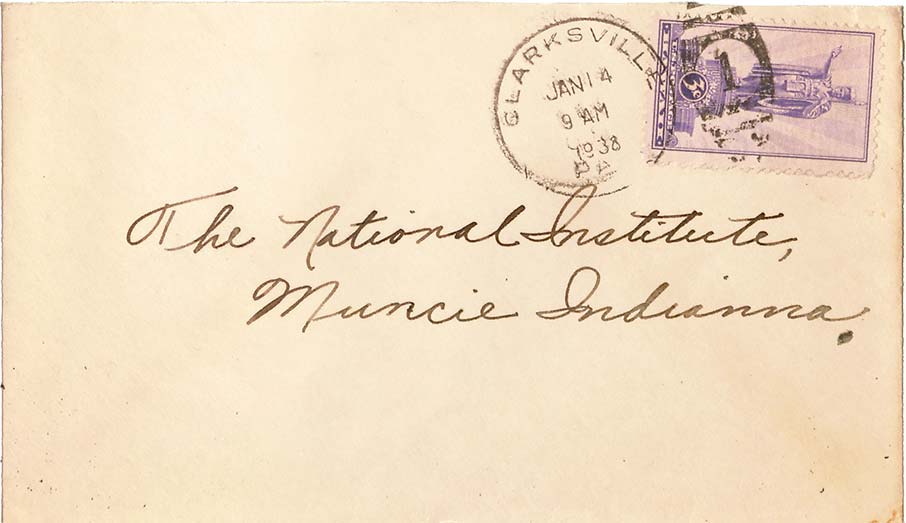 CLARKSVILLE
JAN 14
9 AM
1938
PA
1
3¢
The National Institute,
Muncie Indianna.